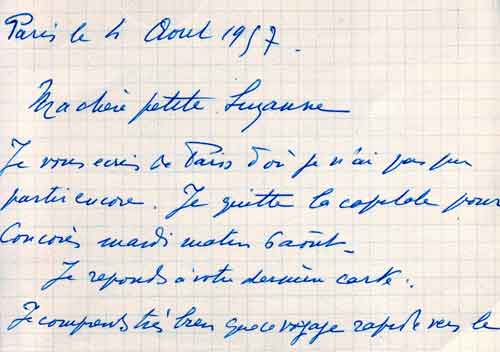 Paris le 4 Aout 1957.
Ma chère petite Suzanne
Je vous ecris de Paris d'où je n'ai pas pu
partir encore. Je quitte la capitale pour
Concorès mardi matin 6 août_
Je reponds à votre dernière carte.
Je comprends très bien que ce voyage rapide vers le